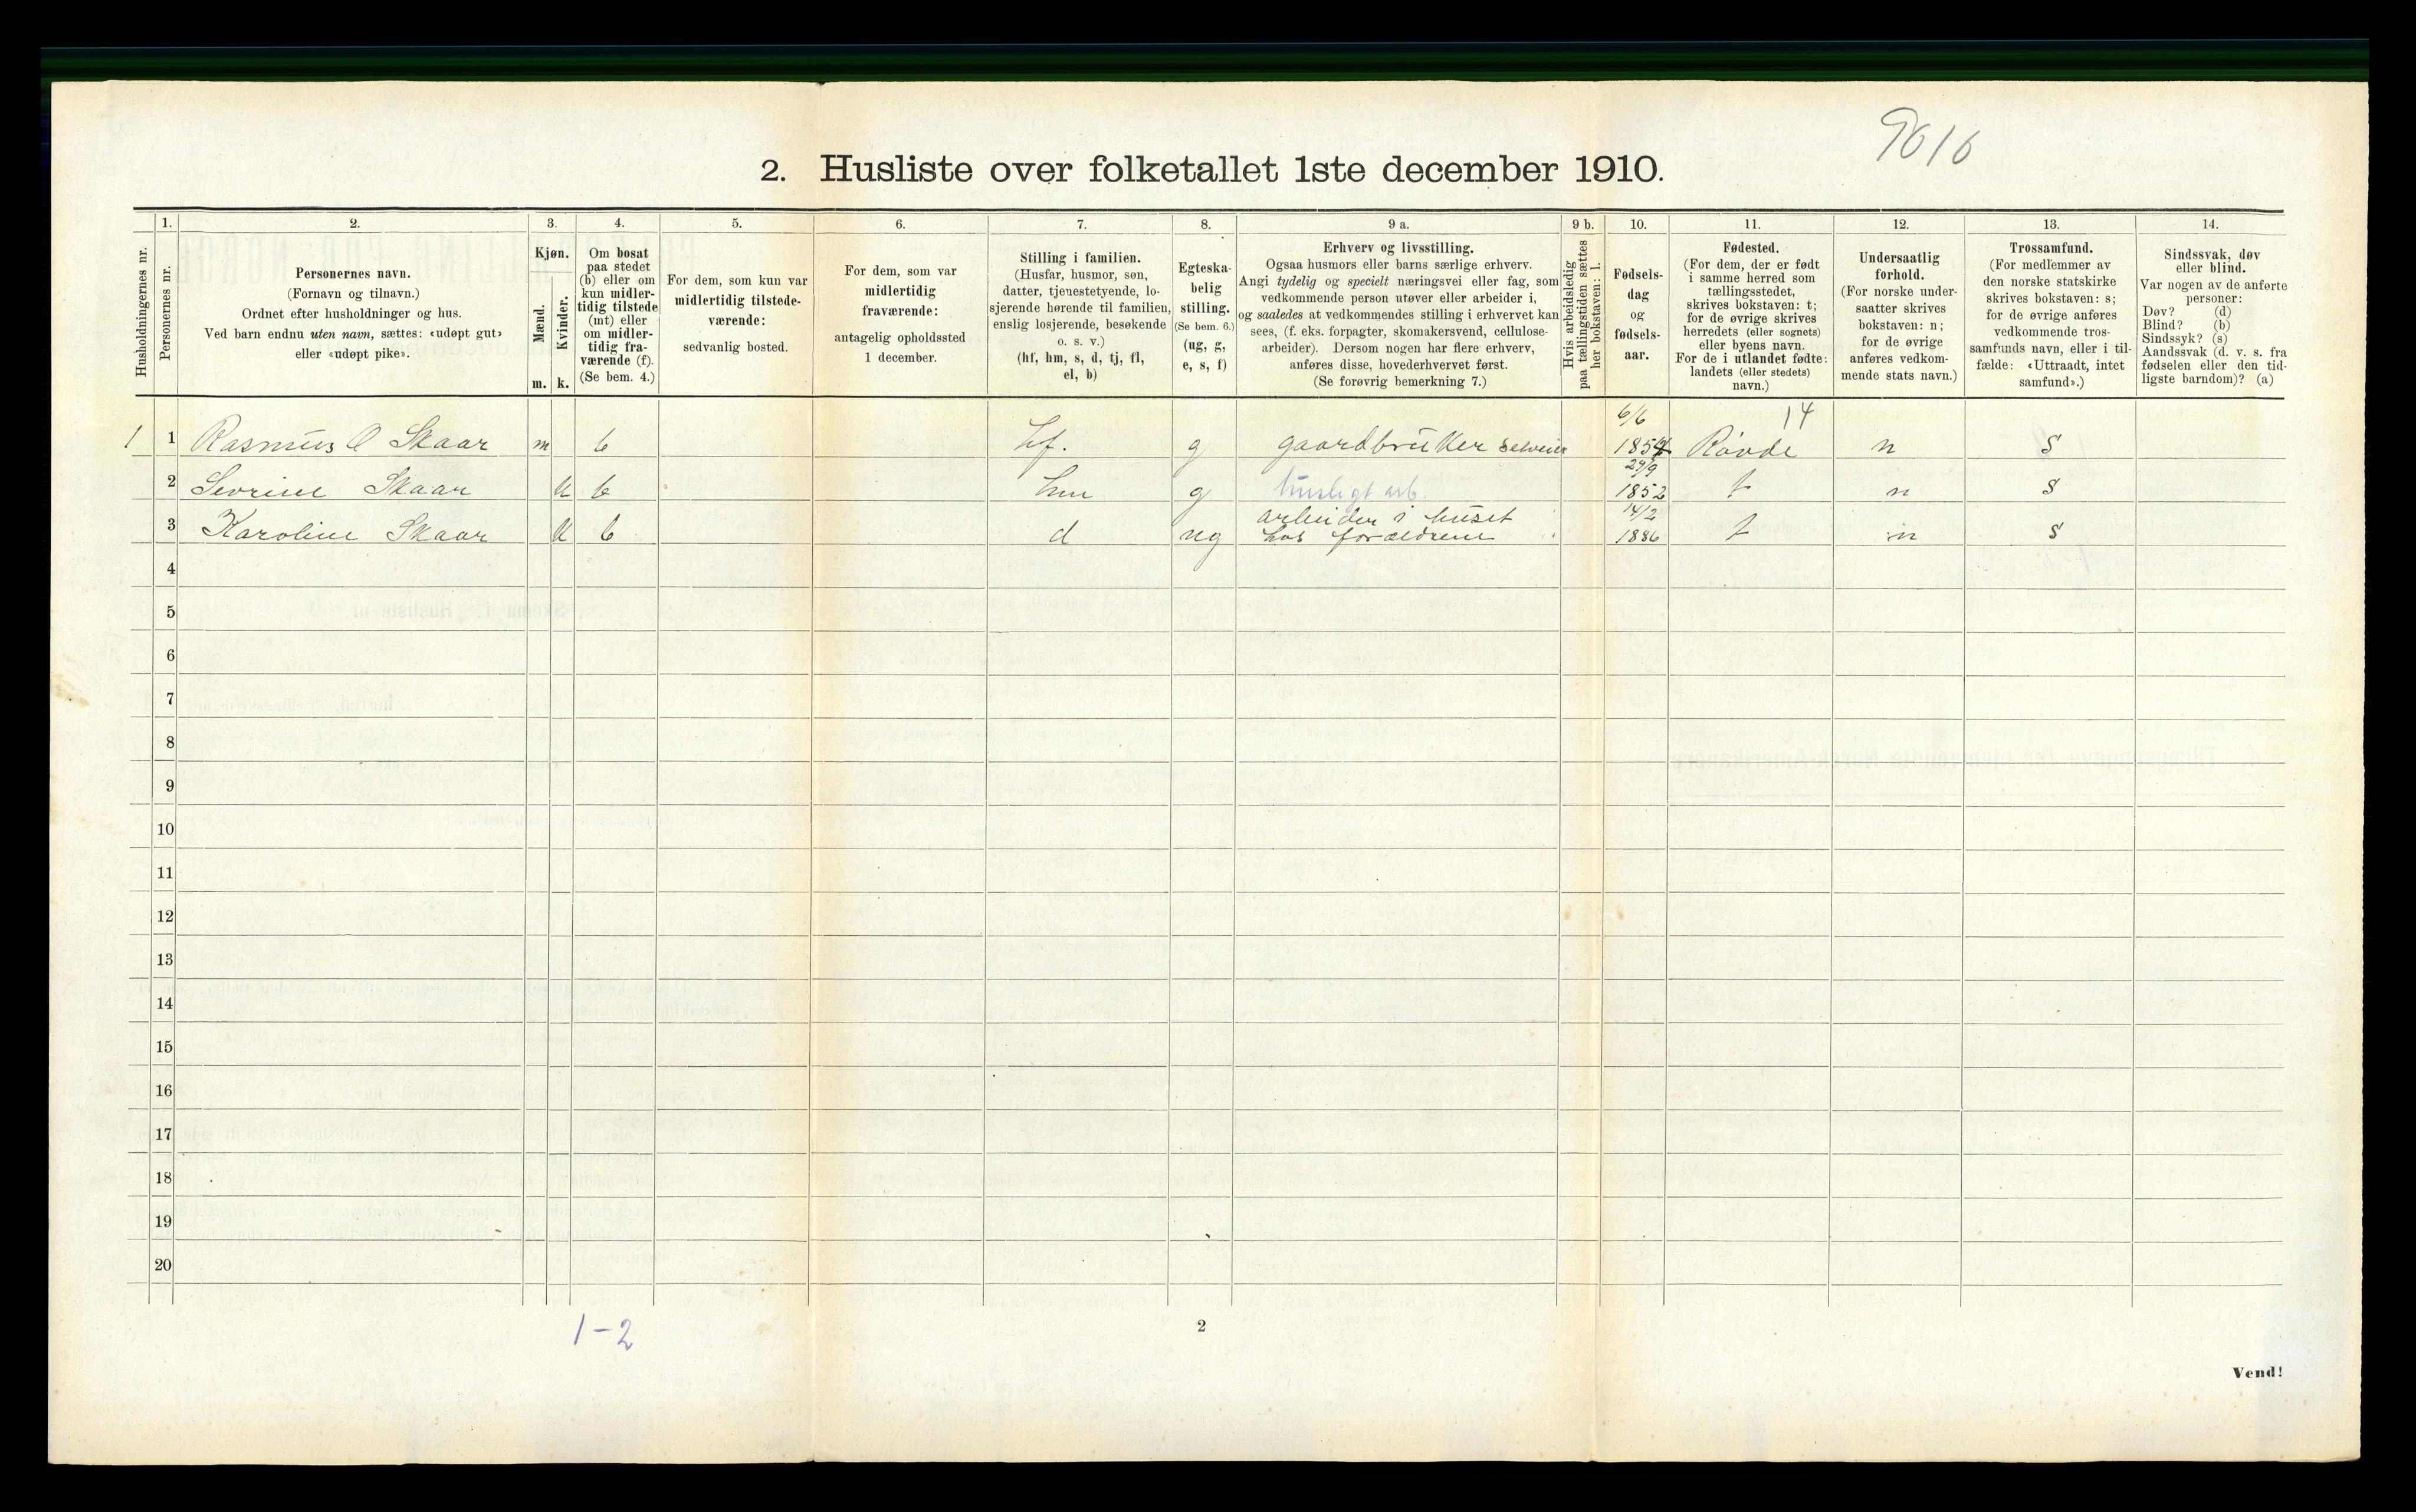 9616
2. Husliste over folketallet 1ste december 1910.
Husholdningernes nr.
1.
Personernes nr.
2.
Personernes navn.
(Fornavn og tilnavn.)
Ordnet efter husholdninger og hus.
Ved barn endnu uten navn, sættes: «udøpt gut»
eller «udøpt pike».
3.
Kjøn.
Mænd.
Kvinder.
m. k.
4.
Om bosat
paa stedet
(b) eller om
kun midler-
tidig tilstede
(mt) eller
om midler-
tidig fra-
værende (f).
(Se bem. 4.)
5.
For dem, som kun var
midlertidig tilstede-
værende:
sedvanlig bosted.
6.
For dem, som var
midlertidig
fraværende:
antagelig opholdssted
1 december.
7.
Stilling i familien.
(Husfar, husmor, søn,
datter, tjenestetyende, lo-
sjerende hørende til familien,
enslig losjerende, besøkende
o. s. v.)
(hf, hm, s, d, tj, fl,
el, b)
8.
Egteska-
belig
stilling.
(Se bem. 6.)
(ug, g,
e, s, f)
9 a.
Erhverv og livsstilling.
Ogsaa husmors eller barns særlige erhverv.
Angi tydelig og specielt næringsvei eller fag, som
vedkommende person utøver eller arbeider i,
og saaledes at vedkommendes stilling i erhvervet kan
sees, (f. eks. forpagter, skomakersvend, cellulose-
arbeider). Dersom nogen har flere erhverv,
anføres disse, hovederhvervet først.
(Se forøvrig bemerkning 7.)
9 b.
Hvis arbeidsledig
paa tællingstiden sættes
her bokstaven: l.
10.
Fødsels-
dag
og
fødsels-
aar.
11.
Fødested.
(For dem, der er født
i samme herred som
tællingsstedet,
skrives bokstaven: t;
for de øvrige skrives
herredets (eller sognets)
eller byens navn.
For de i utlandet fødte:
landets (eller stedets)
navn.)
12.
Undersaatlig
forhold.
(For norske under-
saatter skrives
bokstaven: n;
for de øvrige
anføres vedkom-
mende stats navn.)
13.
Trossamfund.
(For medlemmer av
den norske statskirke
skrives bokstaven: s;
for de øvrige anføres
vedkommende tros-
samfunds navn, eller i til-
fælde: «Uttraadt, intet
samfund».)
14.
Sindssvak, døv
eller blind.
Var nogen av de anførte
personer:
Døv? (d)
Blind? (b)
Sindssyk? (s)
Aandssvak (d. v. s. fra
fødselen eller den tid-
ligste barndom)? (a)
6/6 14
1 1 Rasmus O Skaar m b hf. g gaardbruker selveier 1854 Røvde n S
29/9
2 Sevrine Skaar k b hm g husligt arb. 1852 t n S
arbeider i huset 14/2
3 Karoline Skaar k b d ug hos forældrene 1886 t n S
4
5
6
7
8
9
10
11
12
13
14
15
16
17
18
19
20
1-2
2
Vend!